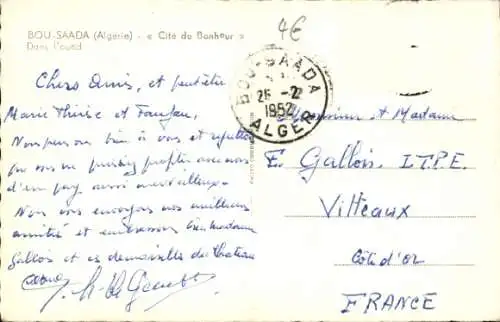 4€
BOU-SAADA (Algérie) - « Cité du Bonheur »
Dans l'oued
BOU-SAADA
26-2
1952
ALGER
Chers Amis, et peut-être
Marie Thérèse et
Nous pensons bien à vous et
que vous ne puissiez profiter avec nous
d'un pays aussi merveilleux.
Nous vous envoyons nos meilleures
amitiés et embrassons bien madame
Gallois et ces demoiselles du Chateau
Monsieur et Madame
E. Gallois. I.T.P.E.
Vitteaux
Côte d'Or
FRANCE